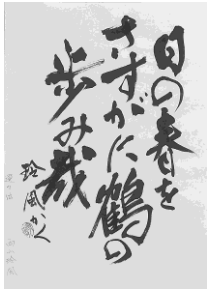 日の春を
さすがに鶴の
歩み哉
玲風かく